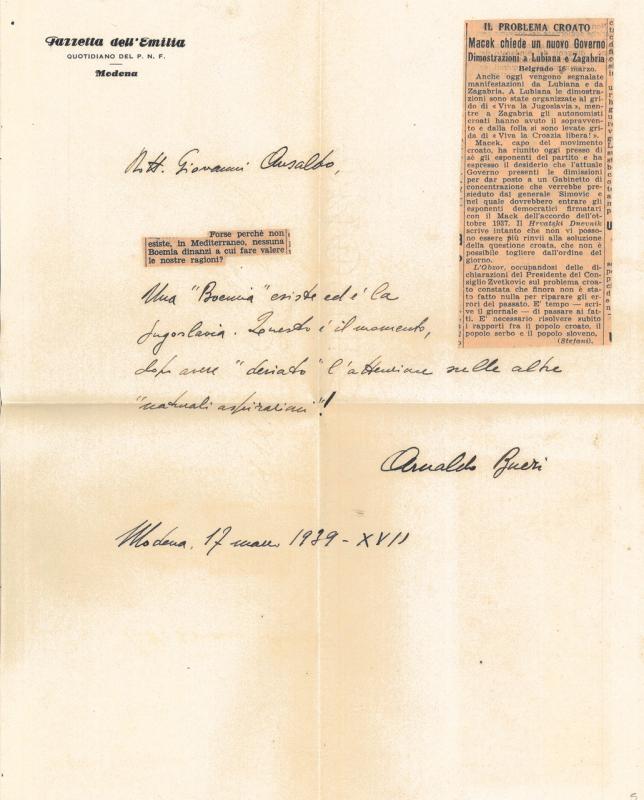 Gazzetta dell'Emilia
QUOTIDIANO DEL P. N. F.
Modena
IL PROBLEMA CROATO
Macek chiede un nuovo Governo
Dimostrazioni a Lubiana e Zagabria
Belgrado 16 marzo.
Anche oggi vengono segnalate
manifestazioni da Lubiana e da
Zagabria. A Lubiana le dimostra-
zioni sono state organizzate al gri-
do di « Viva la Jugoslavia », men-
tre a Zagabria gli autonomisti
croati hanno avuto il sopravven-
to e dalla folla si sono levate gri-
da di « Viva la Croazia libera! ».
Macek, capo del movimento
croato, ha riunito oggi presso di
sè gli esponenti del partito e ha
espresso il desiderio che l'attuale
Governo presenti le dimissioni
per dar posto a un Gabinetto di
concentrazione che verrebbe pre-
sieduto dal generale Simovic e
nel quale dovrebbero entrare gli
esponenti democratici firmatari
con il Mack dell'accordo dell'ot-
tobre 1937. Il Hrvatski Dnevnik
scrive intanto che non vi posso-
no essere più rinvii alla soluzione
della questione croata, che non è
possibile togliere dall'ordine del
giorno.
L'Obzor, occupandosi delle di-
chiarazioni del Presidente del Con-
siglio Zvetkovic sul problema croa-
to constata che finora non è sta-
to fatto nulla per riparare gli er-
rori del passato. E' tempo — scri-
ve il giornale — di passare ai fat-
ti. E' necessario risolvere subito
i rapporti fra il popolo croato, il
popolo serbo e il popolo sloveno.
(Stefani).
Dott. Giovanni Ansaldo,
Forse perchè non
esiste, in Mediterraneo, nessuna
Boemia dinanzi a cui fare valere
le nostre ragioni?
Una "Boemia" esiste ed è la
Jugoslavia. Questo è il momento,
dopo avere "deviato" l'attenzione sulle altre
"naturali aspirazioni"!
Arnaldo Bueri
Modena, 17 marzo 1939 - XVII